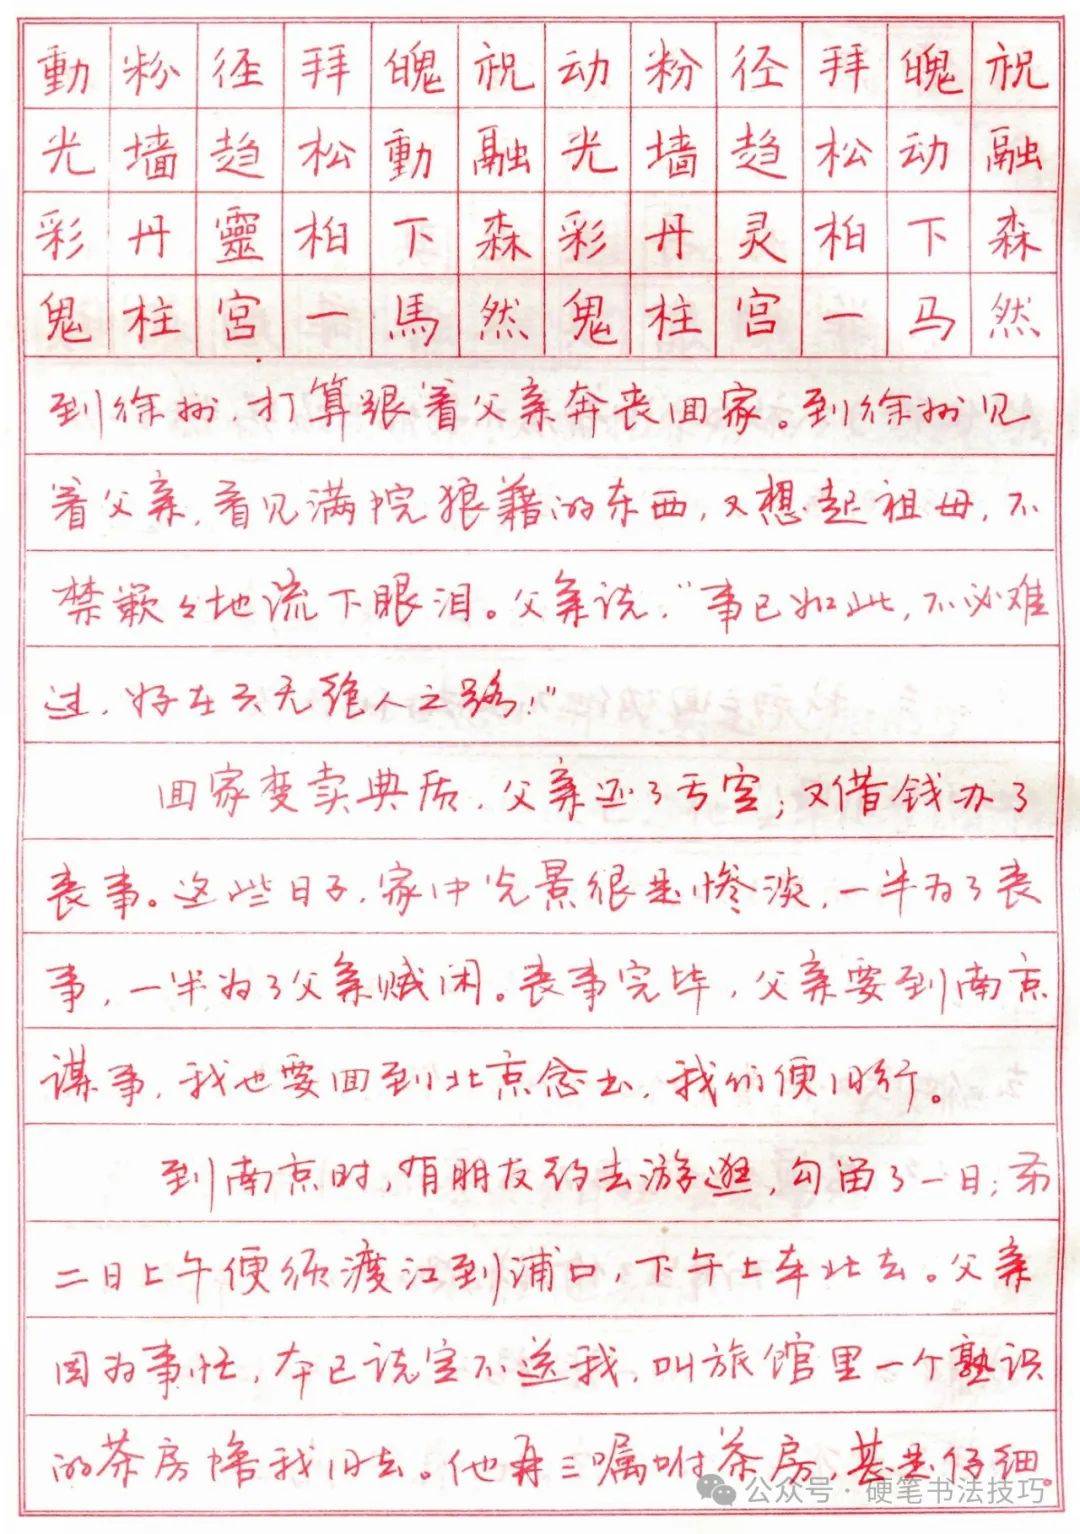 動粉径拜魄祝动粉径拜魄祝
光墙趋松動融光墙趋松动融
彩丹靈柏下森彩丹灵柏下森
鬼柱宮一馬然鬼柱宫一马然
到徐州，打算跟着父亲奔丧回家。到徐州见
着父亲，看见满院狼藉的东西，又想起祖母，不
禁簌々地流下眼泪。父亲说，“事已如此，不必难
过，好在天无绝人之路！”
回家变卖典质，父亲还了亏空；又借钱办了
丧事。这些日子，家中光景很是惨淡，一半为了丧
事，一半为了父亲赋闲。丧事完毕，父亲要到南京
谋事，我也要回到北京念书，我们便同行。
到南京时，有朋友约去游逛，勾留了一日；第
二日上午便须渡江到浦口，下午上车北去。父亲
因为事忙，本已说定不送我，叫旅馆里一个熟识
的茶房陪我同去。他再三嘱咐茶房，甚是仔细。
公众号·硬笔书法技巧